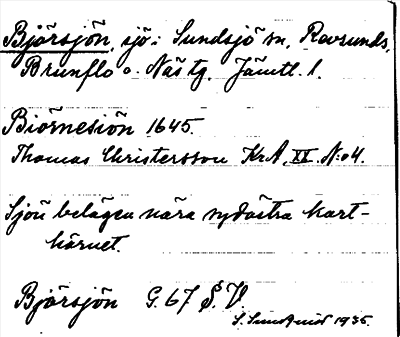 Björsjön, sjö i Sundsjö sn, Revsunds,
Brunflo o. Näs tg. Jämtl. l.
Biörnesiön 1645.
Thomas Christersson Kr.A, XX. N:o 4.
Sjön belägen nära sydöstra kart-
hörnet.
Björsjön G. 67 S.V.
S. Sundqvist 1935.